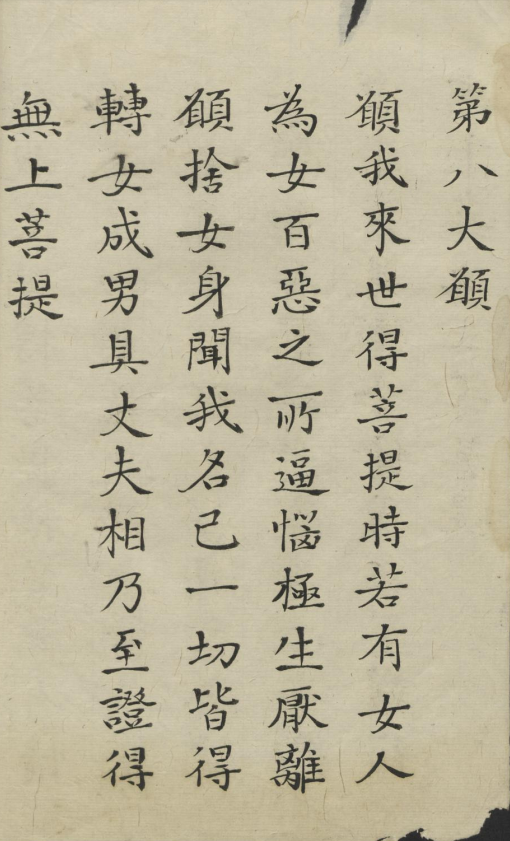 第八大願
願我來世得菩提時若有女人
為女百惡之所逼惱極生厭離
願捨女身聞我名已一切皆得
轉女成男具丈夫相乃至證得
無上菩提